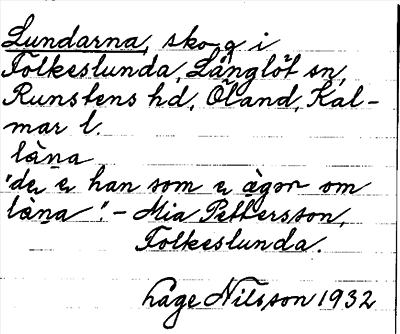 Lundarna, skog i
Folkeslunda, Långlöt sn,
Runstens hd, Öland, Kal-
mar l.
låna
"de e han som e ägar om
låna". – Mia Pettersson,
Folkeslunda.
Åge Nilsson 1932